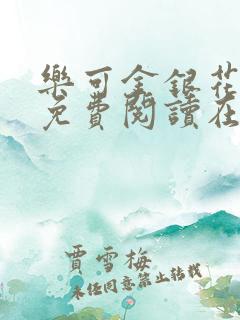 樂可金銀花
免費閱讀在
賈雪梅
未经同意禁止转载